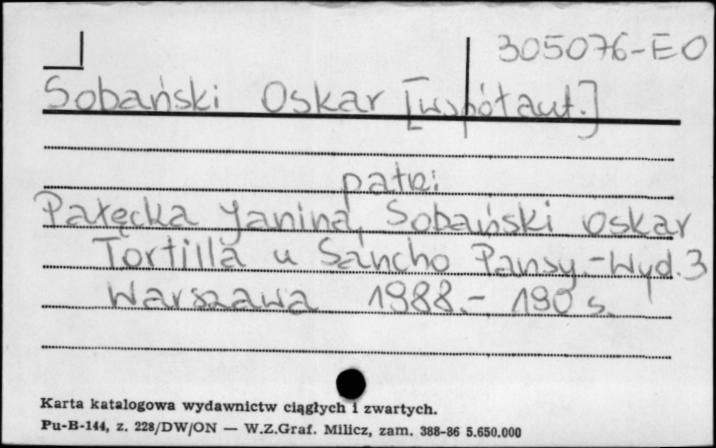 305076-EO
Sobański Oskar [współaut.]
patrz:
Pałęcka Janina, Sobański Oskar
Tortilla u Sancho Pansy.-Wyd.3
Warszawa 1988.- 190 s.
Karta katalogowa wydawnictw ciągłych i zwartych.
Pu-B-144, z. 228/DW/ON — W.Z.Graf. Milicz, zam. 388-86 5.650.000